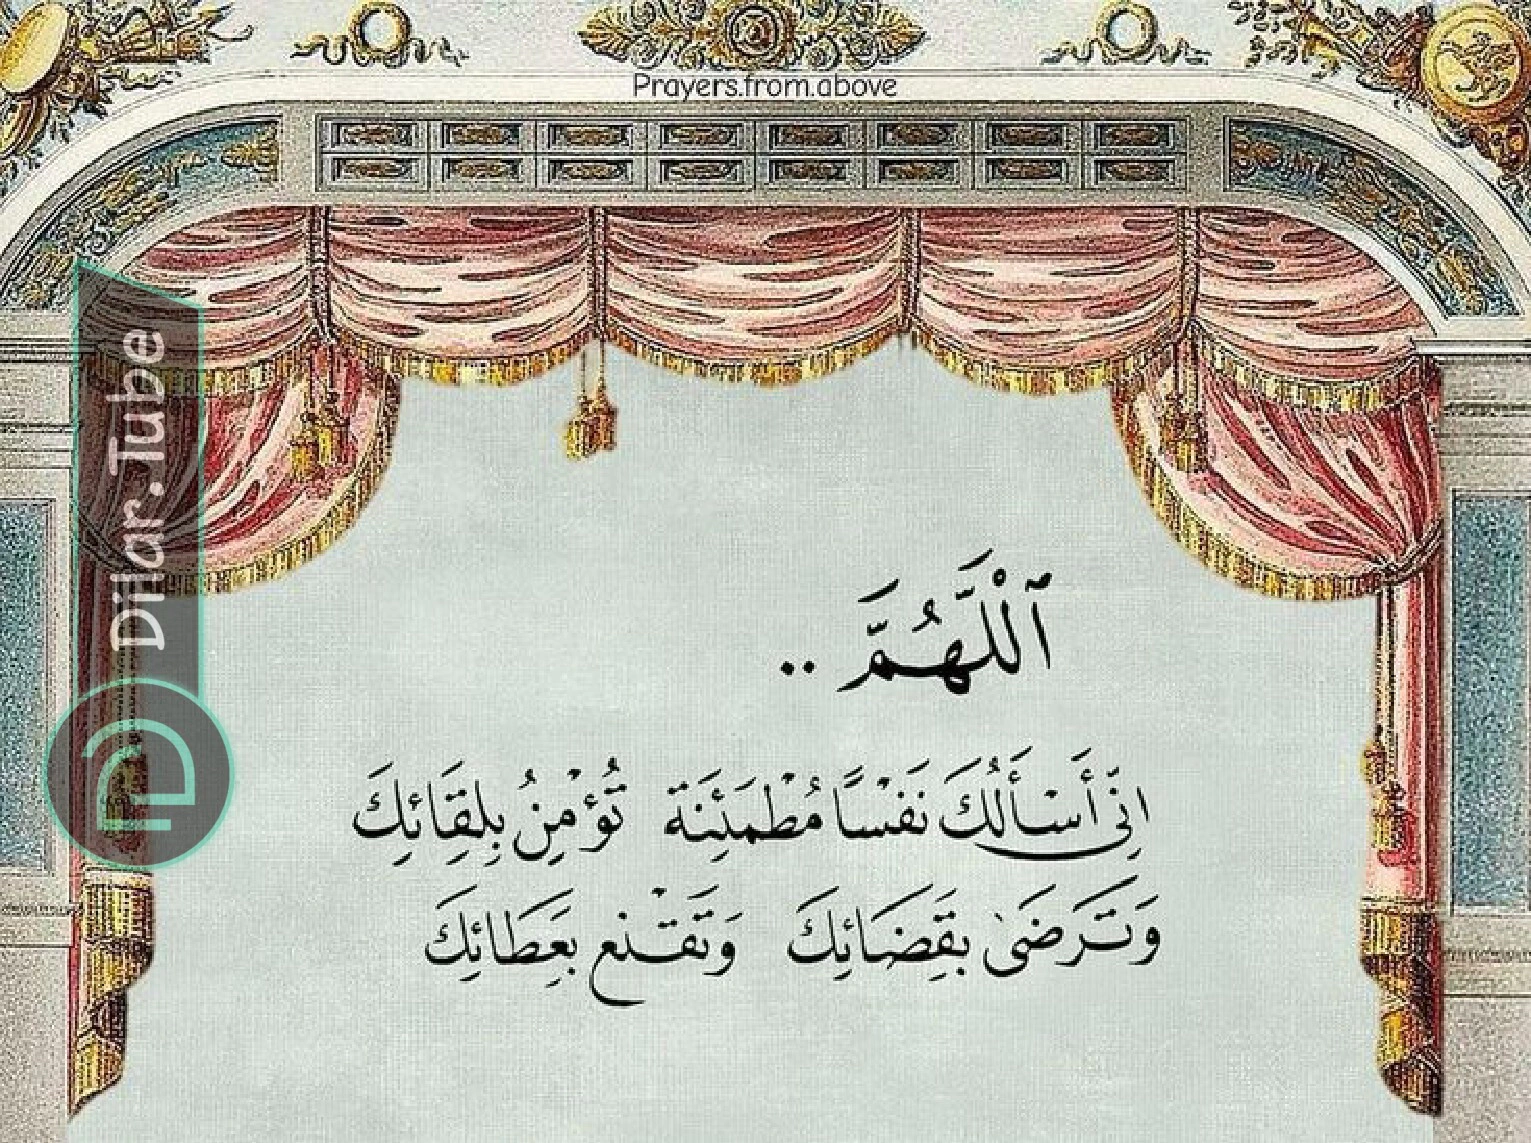 Prayers.from.above
Dilar.Tube
ٱللَّهُمَّ ..
انِّي أَسْأَلُكَ نَفْسًا مُطْمَئِنَة تُؤْمِنُ بِلِقَائِكَ
وَتَرَضَىٰ بِقَضَائِكَ وَتَقْنع بِعَطَائِكَ